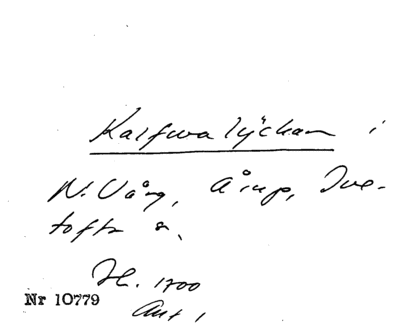 Kalfwalÿckan i
N. Vång, Åirup, Ive-
tofta s.
Hl. 1700
Nr 10779
Akt 1